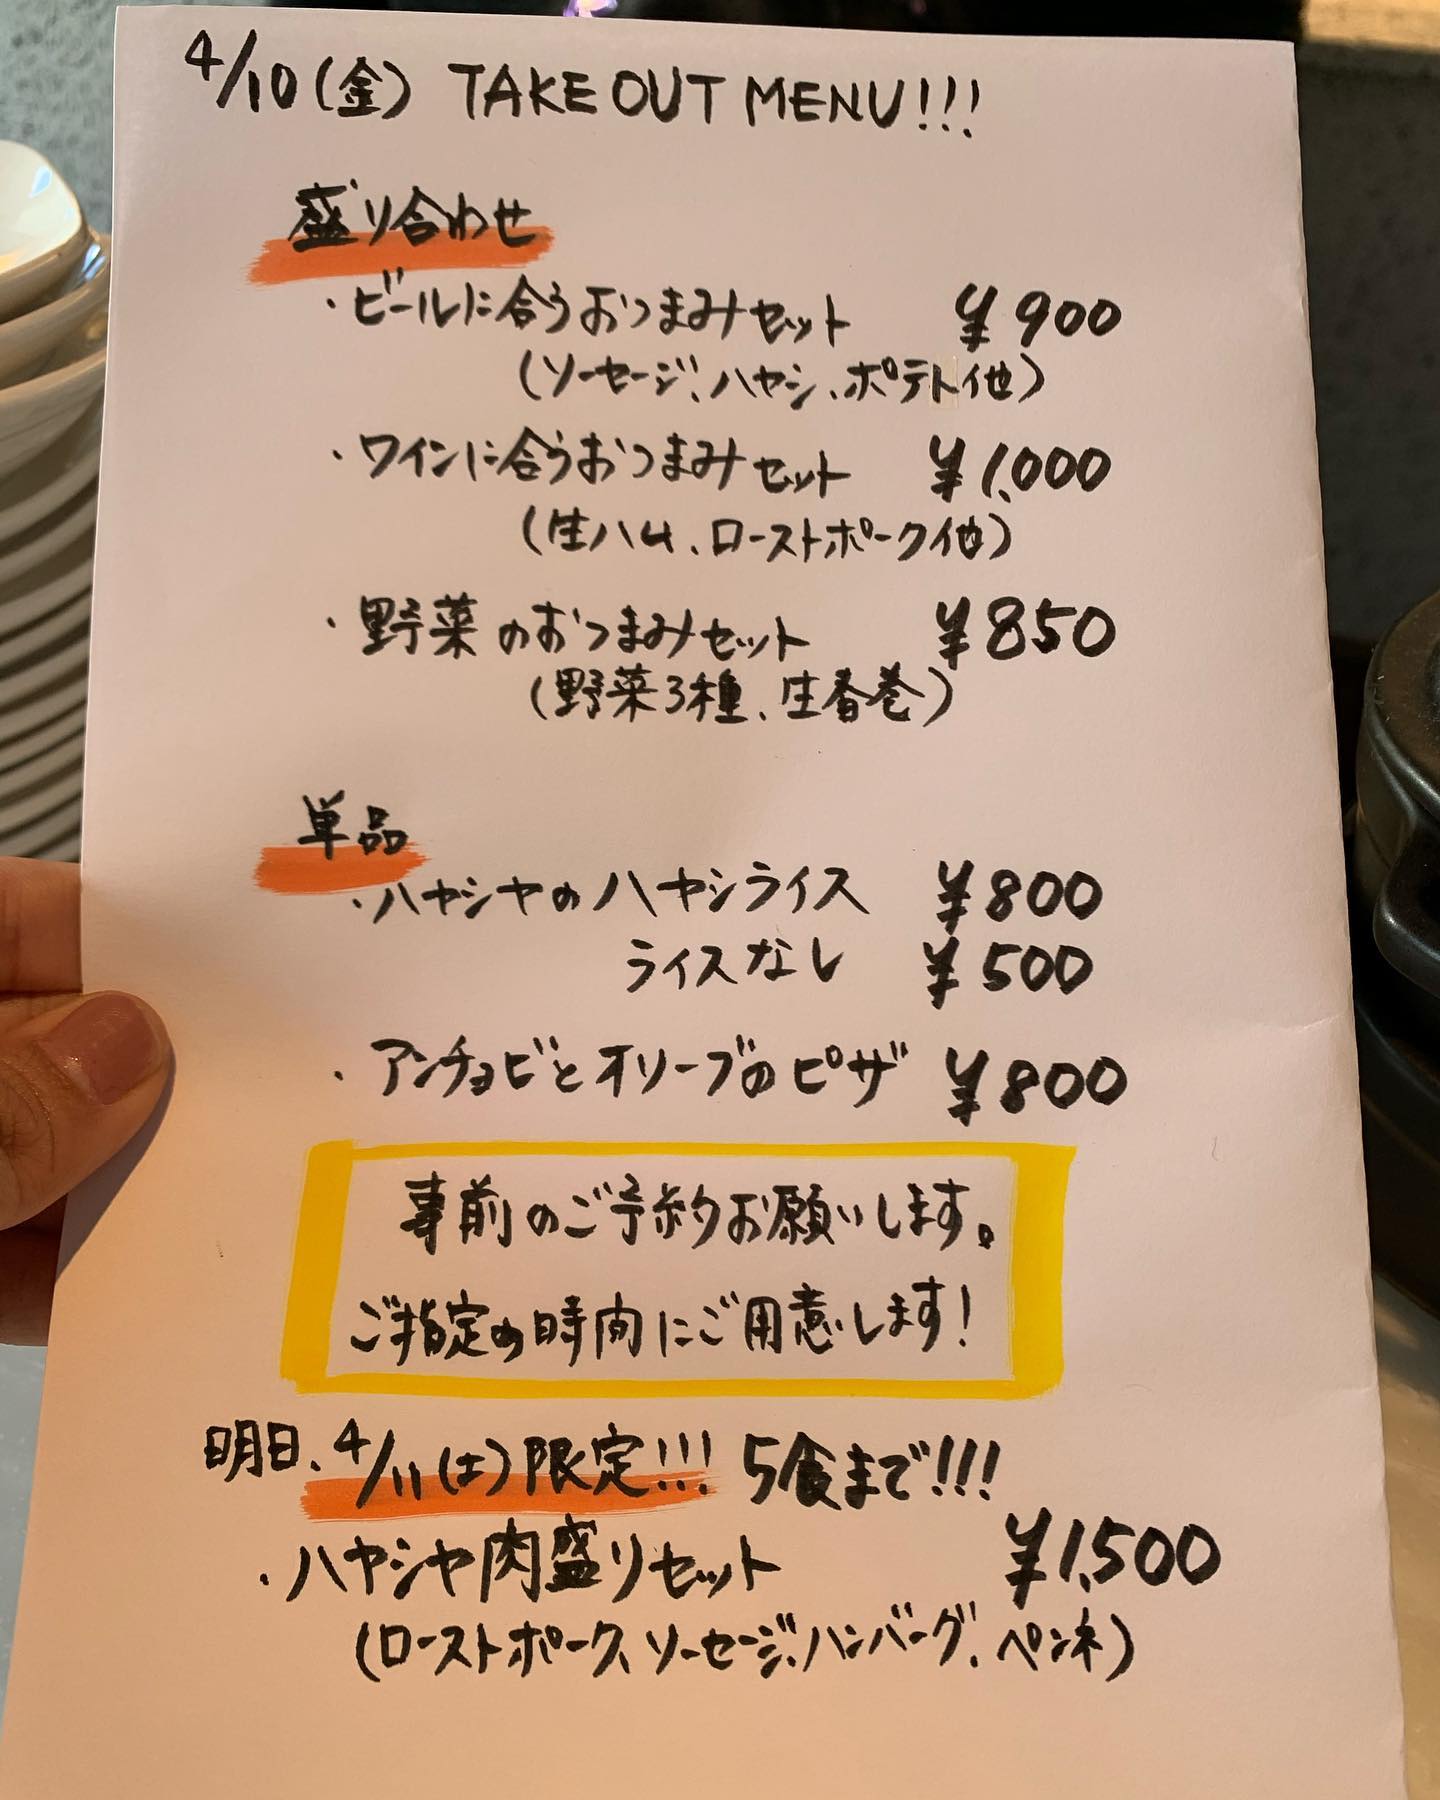 4/10(金) TAKE OUT MENU!!!
盛り合わせ
・ビールに合うおつまみセット ¥900
(ソーセージ、ハヤシ、ポテト他)
・ワインに合うおつまみセット ¥1,000
(生ハム、ローストポーク他)
・野菜のおつまみセット ¥850
(野菜3種、生春巻)
単品
・ハヤシヤのハヤシライス ¥800
ライスなし ¥500
・アンチョビとオリーブのピザ ¥800
事前のご予約お願いします。
ご指定の時間にご用意します!
明日、4/11(土)限定!!! 5食まで!!!
・ハヤシヤ肉盛りセット ¥1,500
(ローストポーク、ソーセージ、ハンバーグ、ペンネ)